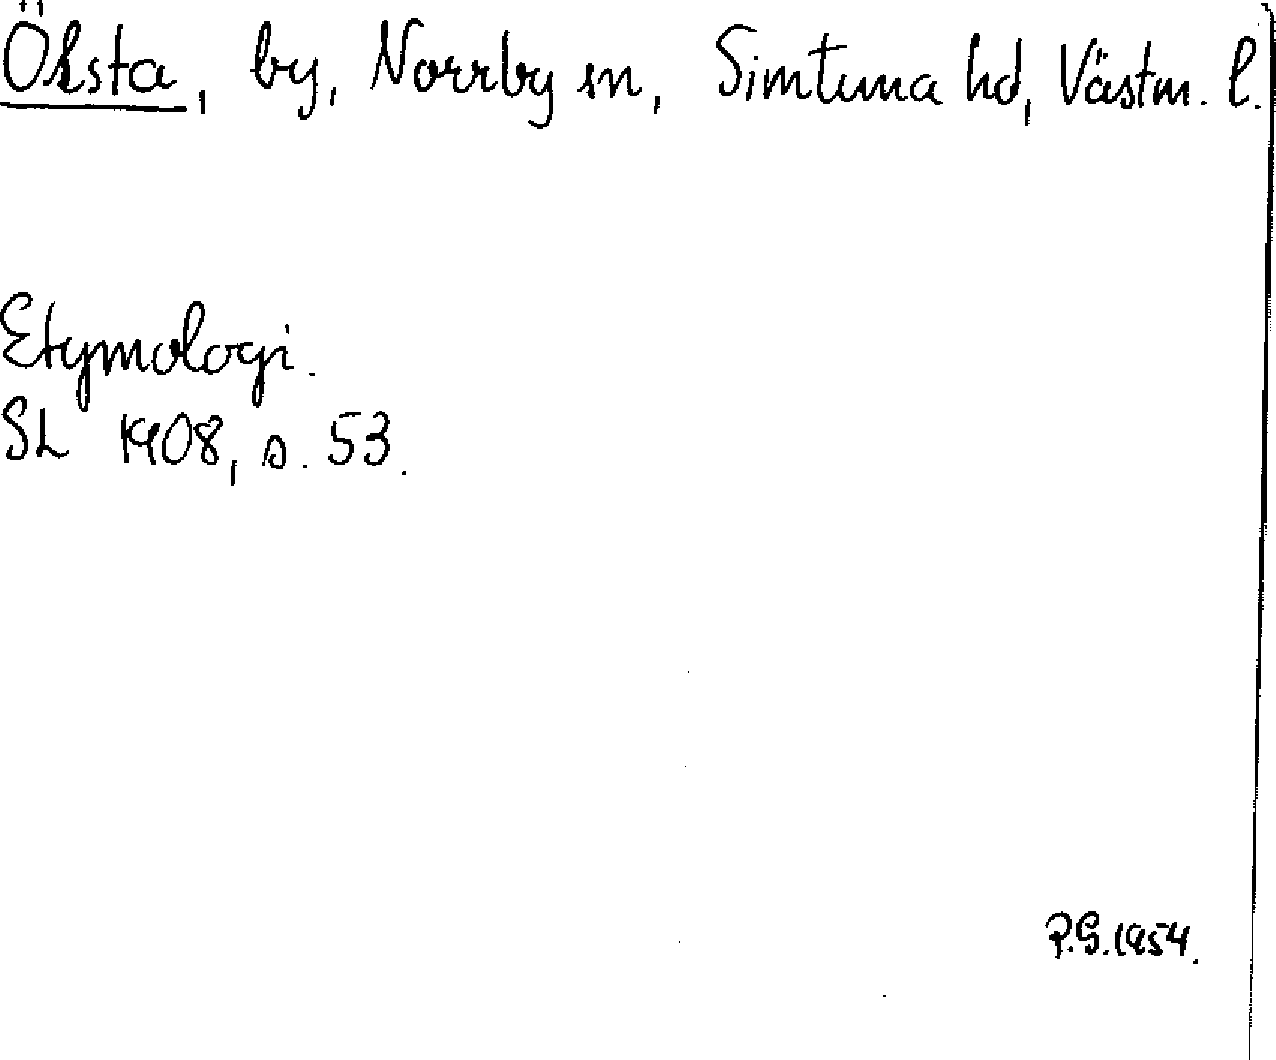 Öksta, by, Norrby sn, Simtuna hd, Västm. l.
Etymologi.
SL 1908, s. 53.
P.G. 1954.